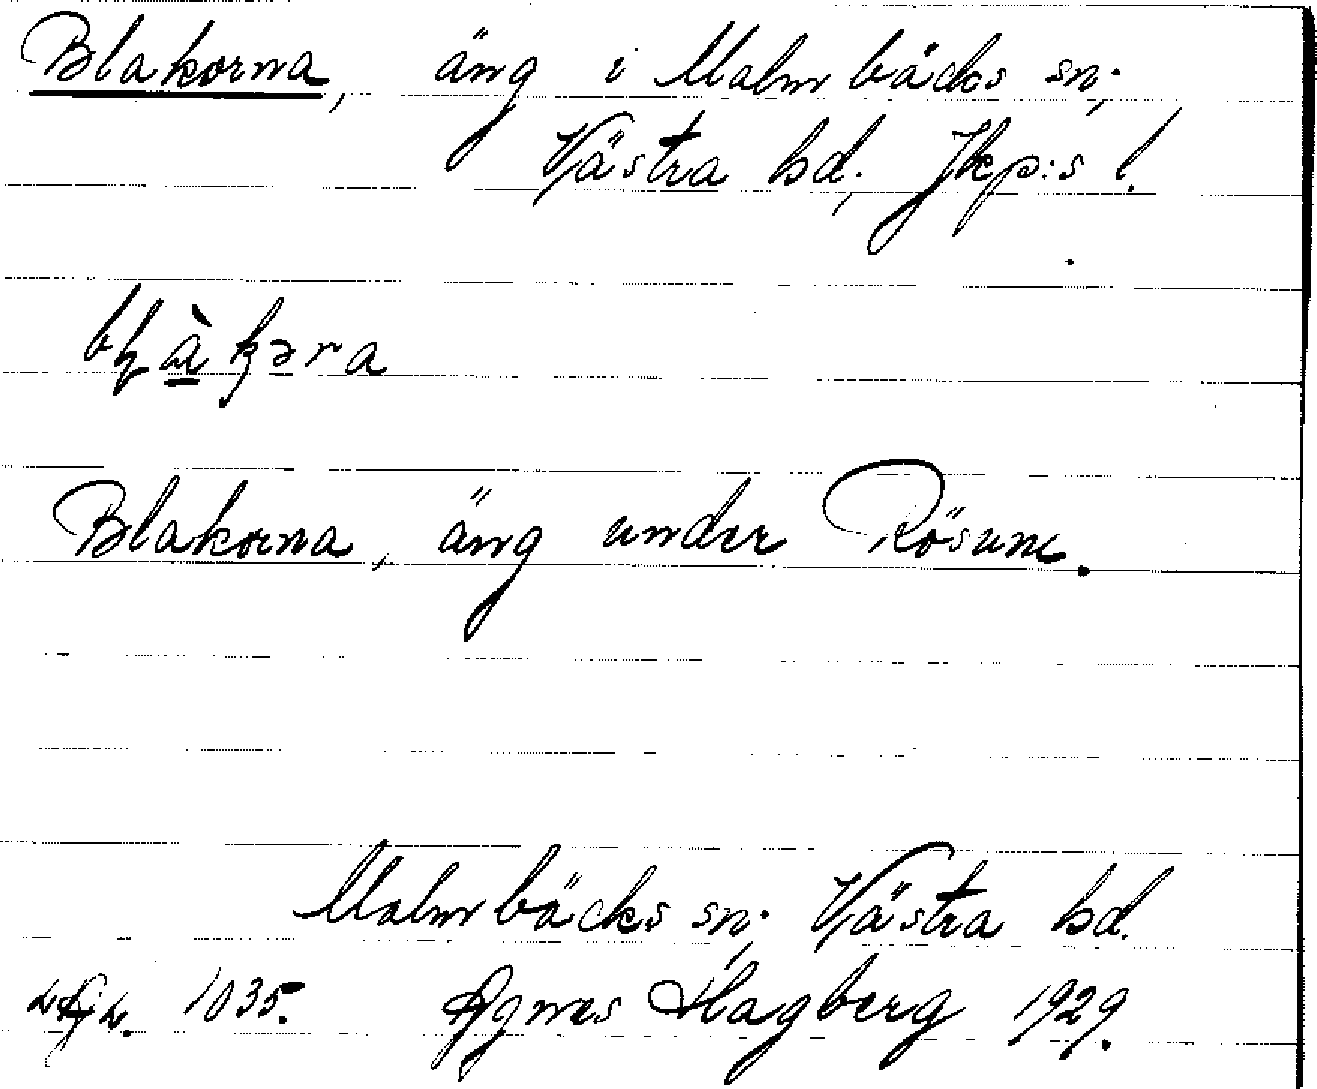 Blakorna, äng i Malmbäcks sn,
Västra hd, Jkp:s l.
Blakorna, äng under Rösum.
Malmbäcks sn, Västra hd.
1035. Agnes Hagberg 1929.